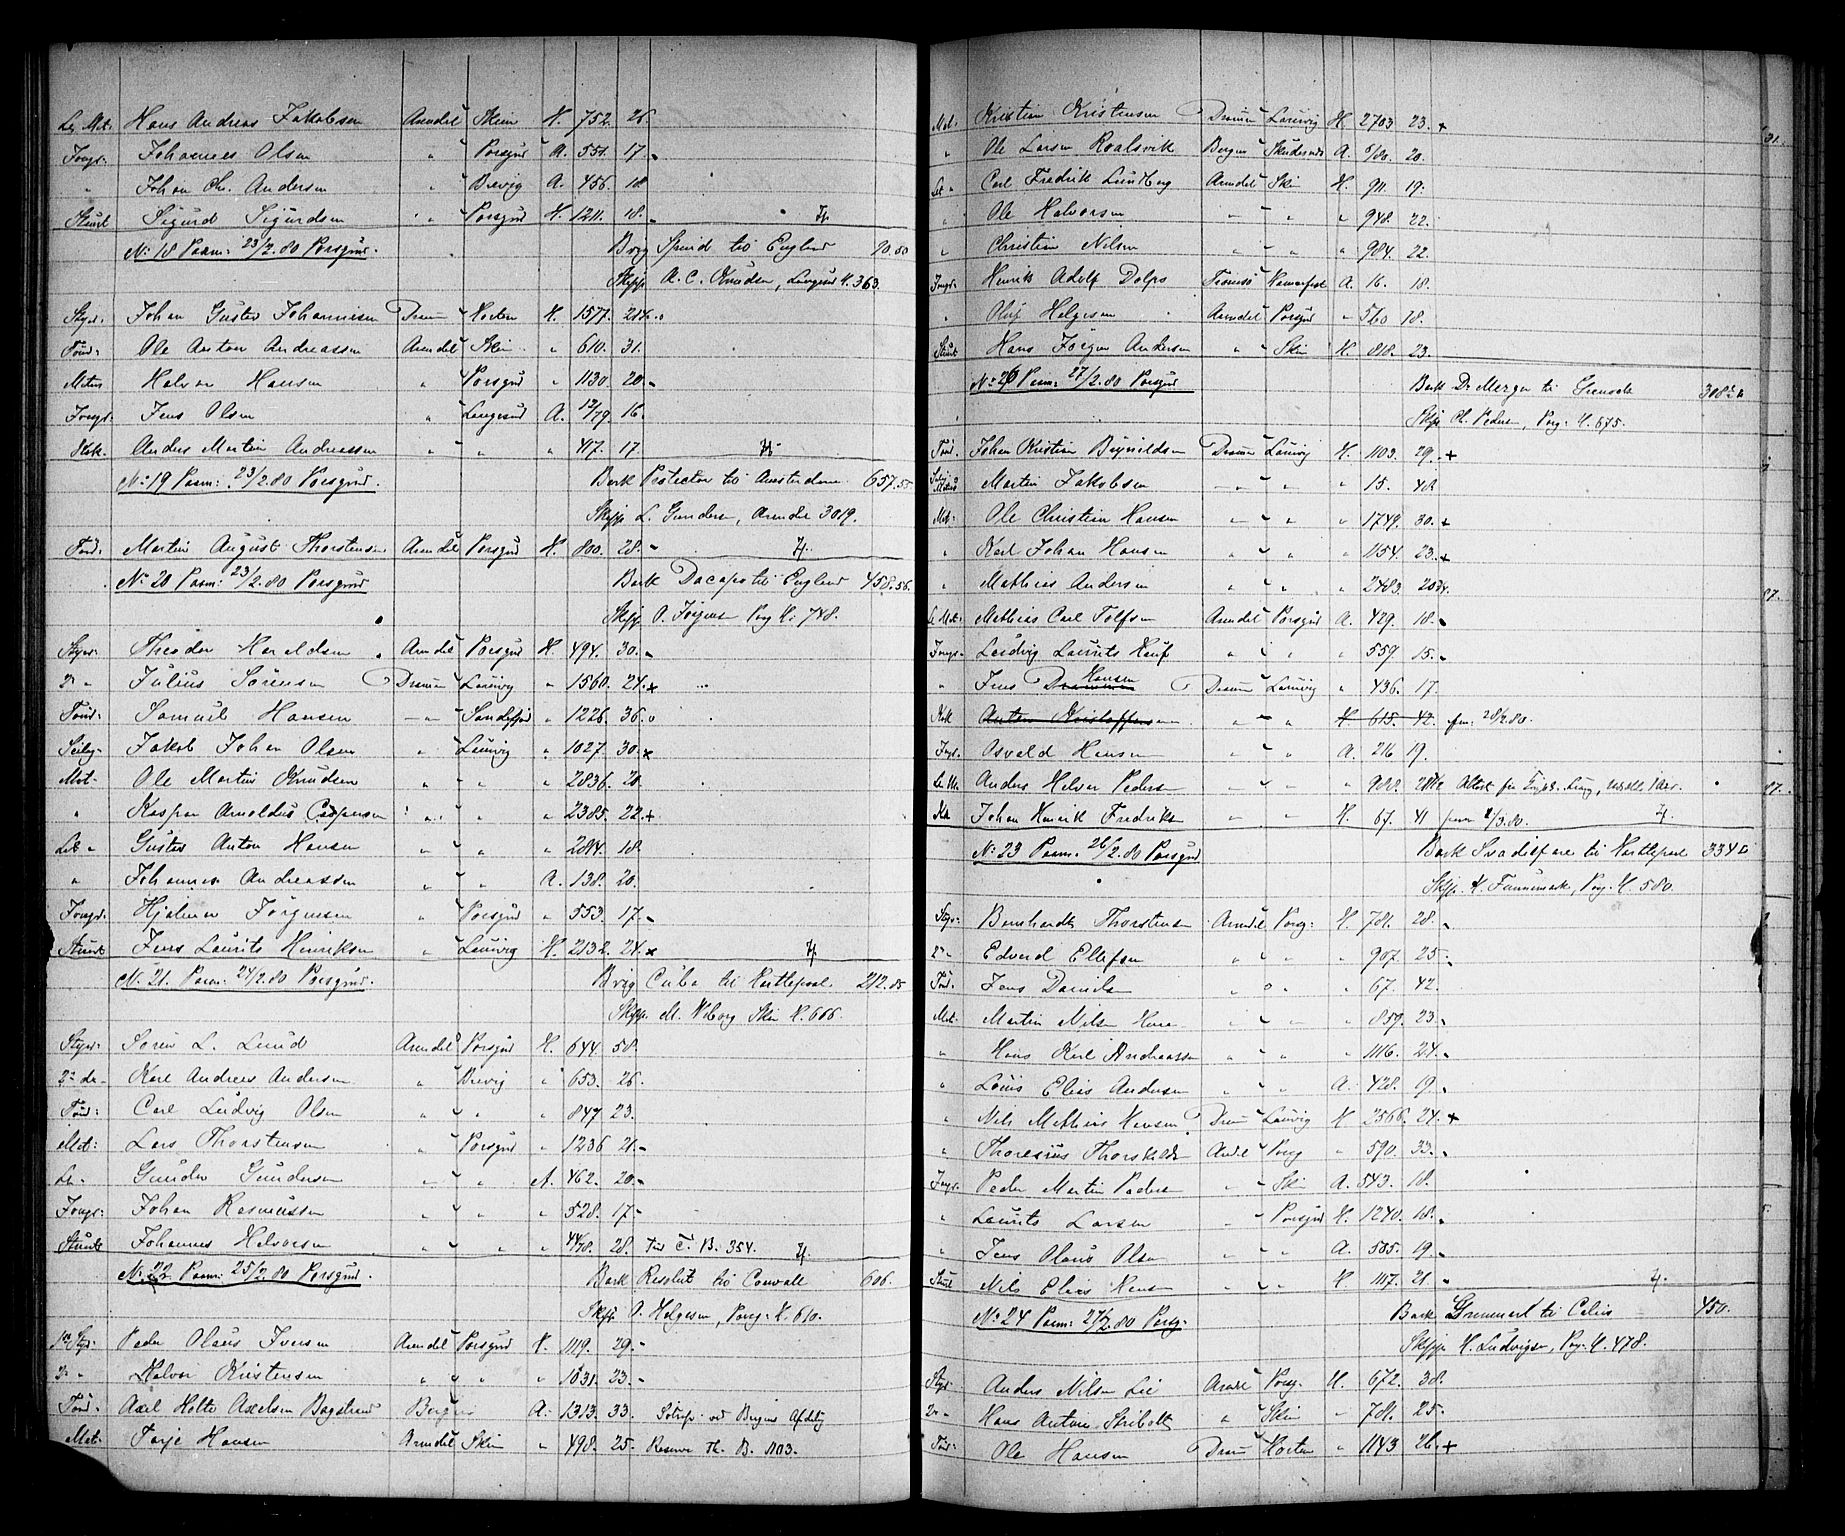 Le. Mat. Hans Andreas Jakobsen Arendal Skien H. 752. 26.
Jongr. Johannes Olsen " Porsgrd A. 551. 17.
" Johan Chr. Andersen " Brevig A. 456. 18
Stuert Sigurd Sigurdsen " Porsgrd H. 1211. 18.
No 18 Paam: 23/2.80 Porsgrd. Brig Spind til England 90.50
Skipp A. C. Knudsen, Langesd H. 363.
Styr. Johan Gustav Johannesen Dram Horten H. 1577. 21
Tømd: Ole Anton Andreassen Arendal Skien " 610. 31.
Matros Halvor Hansen " Porsgrd " 1130. 20.
Jongr. Jens Olsen " Langesund A. 12/79 16.
Kok. Anders Martin Andreassen " " " 417. 17
No 19 Paam: 23/2.80 Porsgrd. Bark Protector til Amsterdam 657.50
Skipp L. Gunders, Arendal 3019.
Tømd. Martin August Thorstensen Arendal Porsgrd H. 800. 28.
No 20 Paam: 23/2.80 Porsgrd Bark Dacapo til England 458.56.
Skipp O. Jørgensen Porsg H. 748.
Styr. Theodor Haraldsen Arendal Porsgrd H. 494. 30.
2n " Julius Sørensen Dram Laurvig " 1560. 24. +
Tømd. Samuel Hansen " Sandefjord " 1226. 36.
Seilm. Jakob Johan Olsen " Laurvig " 1027. 30. +
Mat. Ole Martin Knudsen " " " 2836. 20.
" Kaspar Arnoldus Caspersen " " " 2385. 22. +
Let " Gustav Anton Hansen " " " 2814. 18.
" Johannes Andreassen " " A. 138. 20.
Jongr. Hjalmar Jørgensen " Porsgrd " 553. 17.
Stuert Jens Laurits Henriksen " Laurvig H. 2132. 24. +
No 21. Paam: 24/2.80 Porsgrd. Brig Cuba til Hartlepool 212.85
Skipp. M. Wiborg Skien H. 666.
Styr. Søren L. Lund Arendal Porsgrd H. 644. 58.
2n do Karl Andreas Andersen " Brevig " 653. 26.
Tømd: Carl Ludvig Olsen " " " 847. 23.
Mat: Lars Thorstensen " Porsgrd " 1236 21.
Le. Gunder Gundersen " " A. 462. 20.
Jongr. Johan Rasmussen " " " 528. 17.
Stuert Johannes Halvorsen " " " 44/78. 28. T. B. 354.
No 22 Paam: 25/2.80 Porsgrd. Bark Resolut til Cornvall 606.
Skipp O. Helgesen, Porsg. H. 610.
1n Styr. Peder Olaus Iversen Arendal Porsgrd H. 1119. 29.
2n " Halvor Kristensen " " " 1031. 23.
Tømd. Axel Holte Axelsen Bagstrand Bergens A. 1313. 33. Søtrap. ved Bergens Afdeling
Mat. Terje Hansen Arendal Skien " 498. 25. Reserve Th. B. 1103.
Mat. Kristian Kristensen Dram Laurvig H. 2703 23. +
" Ole Larsen Roalsvik Bergen Skudesnæs A. /80. 20.
Let " Carl Fredrik Lundberg Arendal Skien H. 911. 19.
" Ole Halvorsen " " " 948. 22.
" Christian Nilsen " " " 984. 22.
Jongr. Henrik Adolf Dolps Tromsø Hamerfest A. 16. 18.
" Oluf Helgesen Arendal Porsgrd " 560 18.
Stuert Hans Jørgen Andersen " Skien H. 818. 23.
No 26 Paam: 27/2.80 Porsgrd Bark D. Mezger til Grensada 308
Skipp Ch. Pedersen, Porsg. H. 675.
Tømd. Johan Kristian Brynildsen Dram Laurvig H. 1103. 29. +
Martin Jakobsen " " " 15. 48.
Mat. Ole Christian Hansen " " " 1749. 30. +
" Karl Johan Hansen " " " 1154. 23. +
" Mathias Andersen " " " 2483. 20
Le Mat. Mathias Carl Tolfsen Arendal Porsgrd A. 429. 18.
Jongr. Ludvig Laurits Hauf " " " 559. 15.
" Jens Hansen Dram Laurvig " 436. 17.
Kok Anton Kristoffersen " " H 615. 42. fra. 28/2.80.
Jngr. Osvald Hansen " " A. 216 19.
Le Ma. Anders Halvor Pedersen " " " 988. 28
Kok Johan Henrik Fredriksen " " H. 67. 41 paam 2/3.80.
No 23 Paam. 26/2.80 Porsgrd Bark Svadilfare til Hartlepool 334
Skipp. H. Funnemark, Porsg. H. 580.
Styr. Bernhardt Thorstensen Arendal Porsg. H. 781. 28.
2n Edvard Ellefsen " " " 907. 25.
Tømd. Jens Daniels " " " 67. 42.
Mat. Martin Nilsen Herre " " " 859. 23.
" Hans Karl Andreassen " " " 1116. 24.
" Louis Elias Andersen " " A. 428. 19.
" Nils Mathias Hansen Dram Laurvig H 2566. 24. +
" Thoresius Thorskilds Arndl Porsg " 590. 33.
Jngr. Peder Martin Peders " Skien A. 543. 18.
" Laurits Larsen " Porsgrd H. 1240. 18.
" Jens Olaus Olsen " " A. 585. 19.
Stuert Nils Elias Hansen " " H 1107. 21.
No 24 Paam: 27/2.80 Porsg. Bark Grunert til Calais 450.
Skipp H. Ludvigsen, Porsg. H. 478.
Styr. Anders Nilsen Lie Arendl Porsg. H. 672. 38.
2n " Hans Anton Skibolt " Skien " 781. 25.
Tømd. Ole Hansen Dram Horten " 1143 26. +